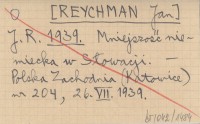 [REYCHMAN Jan]
J. R. 1939. Mniejszość nie-
miecka w Słowacji. —
Polska Zachodnia (Katowice)
nr 204, 26. VII. 1939.